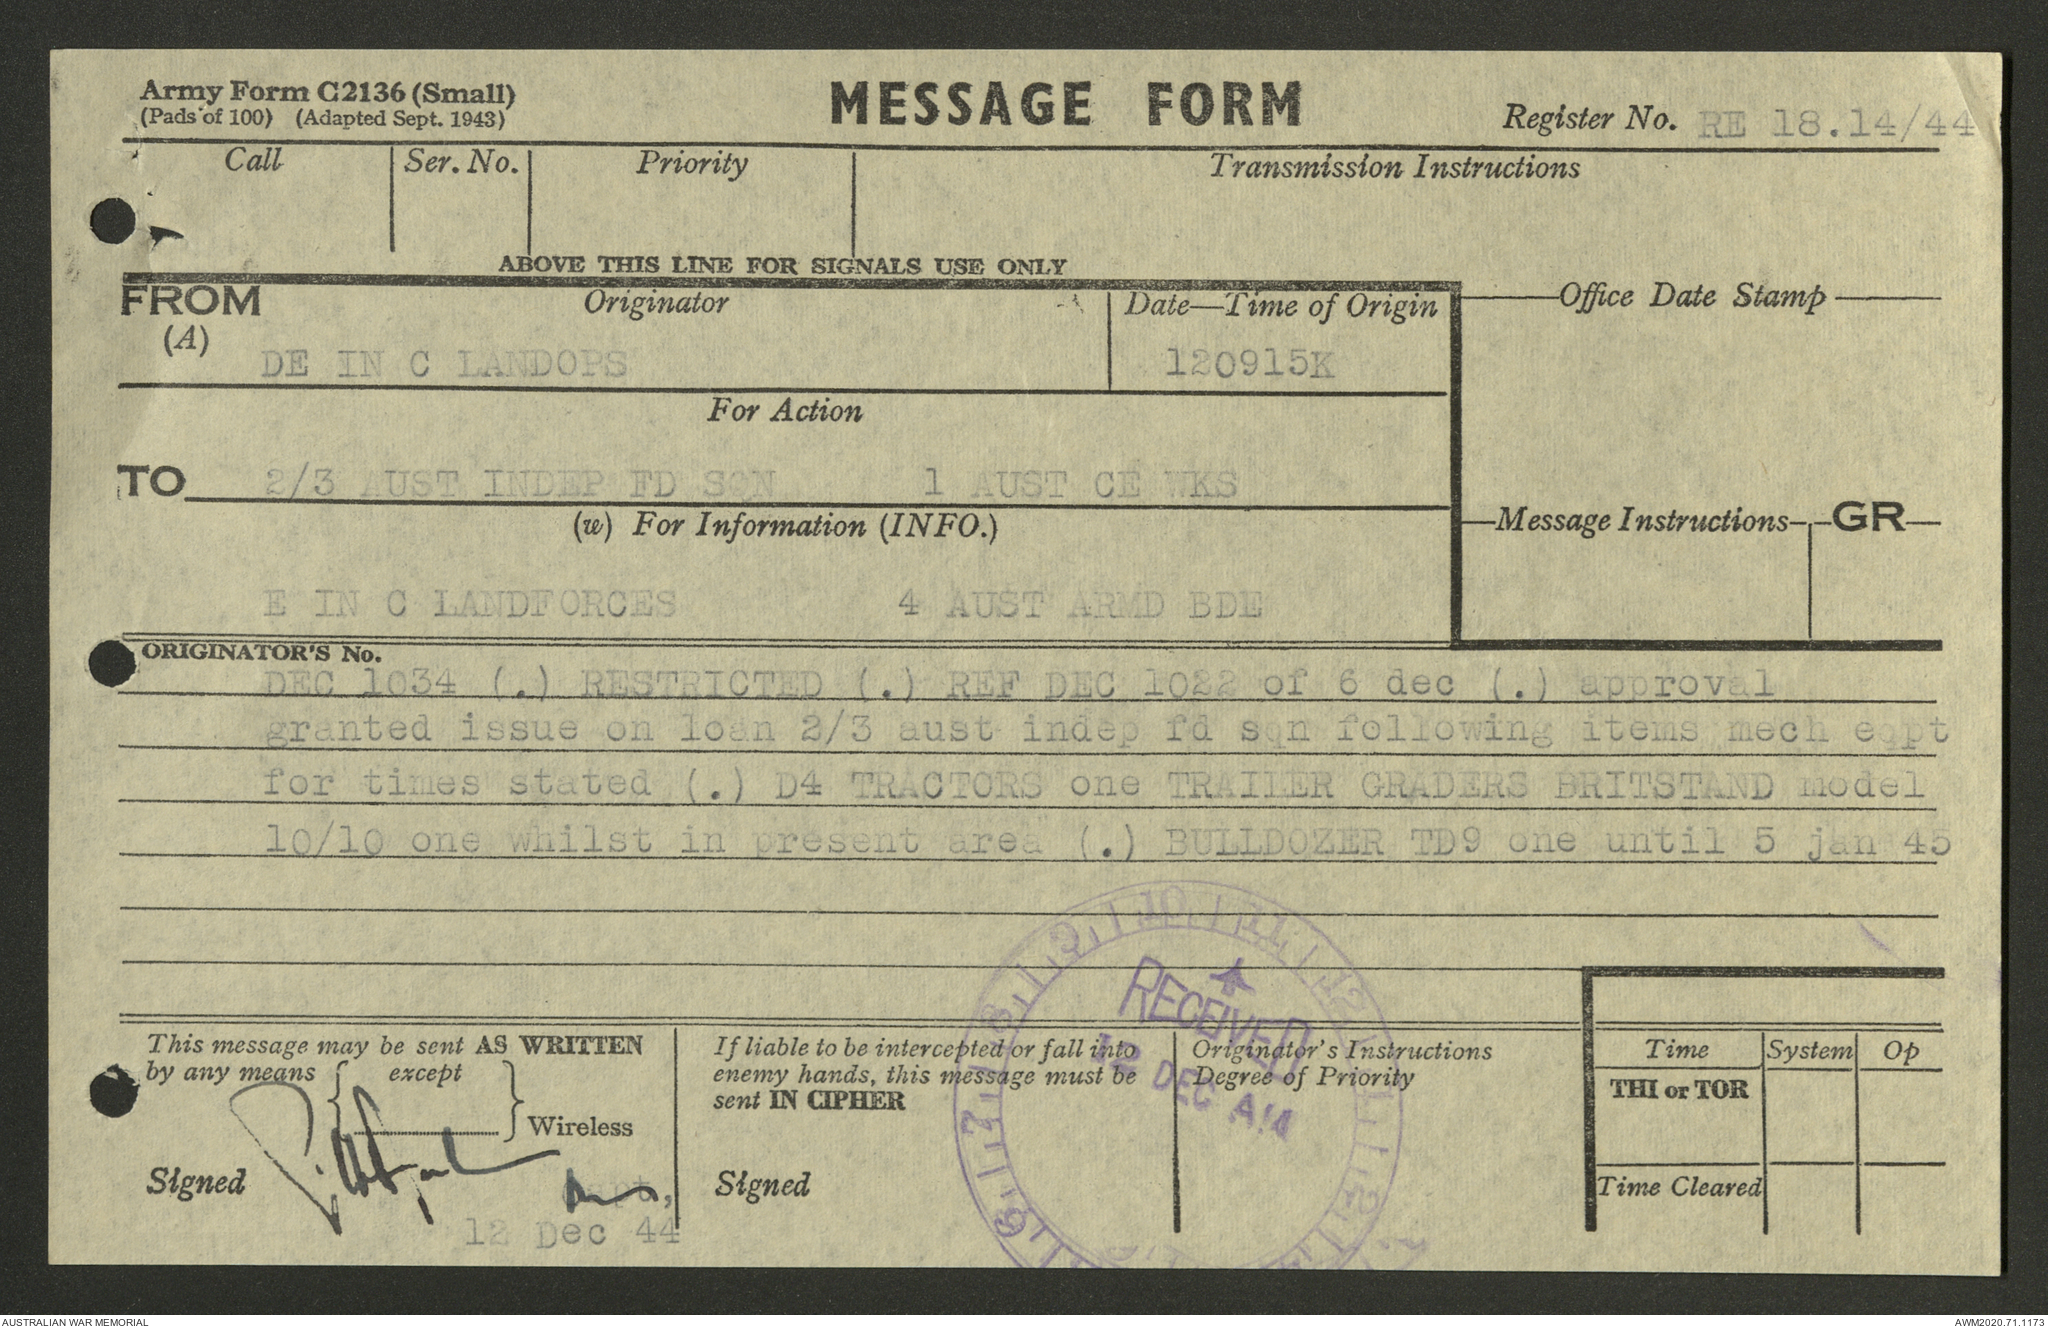 Army Form C2136 (Small)
(Pads of 100) (Adapted Sept. 1943)
MESSAGE FORM
Register No. RE 18.14/44
Call
Ser. No.
Priority
Transmission Instructions
ABOVE THIS LINE FOR SIGNALS USE ONLY
FROM
(A)
Originator
Date—Time of Origin
Office Date Stamp
DE IN C LANDOPS
120915K
For Action
TO 2/3 AUST INDEP FD SQN 1 AUST CE WKS
(w) For Information (INFO.)
Message Instructions
GR
E IN C LANDFORCES 4 AUST ARMD BDE
ORIGINATOR'S No.
DEC 1034 (.) RESTRICTED (.) REF DEC 1022 of 6 dec (.) approval
granted issue on loan 2/3 aust indep fd sqn following items mech eqpt
for times stated (.) D4 TRACTORS one TRAILER GRADERS BRITSTAND model
10/10 one whilst in present area (.) BULLDOZER TD9 one until 5 jan 45
This message may be sent AS WRITTEN
by any means except
Wireless
Signed
Capt,
12 Dec 44
If liable to be intercepted or fall into
enemy hands, this message must be
sent IN CIPHER
Signed
Originator's Instructions
Degree of Priority
6 7 8 9 10 11 12 1 2
RECEIVED
12 DEC
Time
System
Op
THI or TOR
Time Cleared
AUSTRALIAN WAR MEMORIAL
AWM2020.71.1173